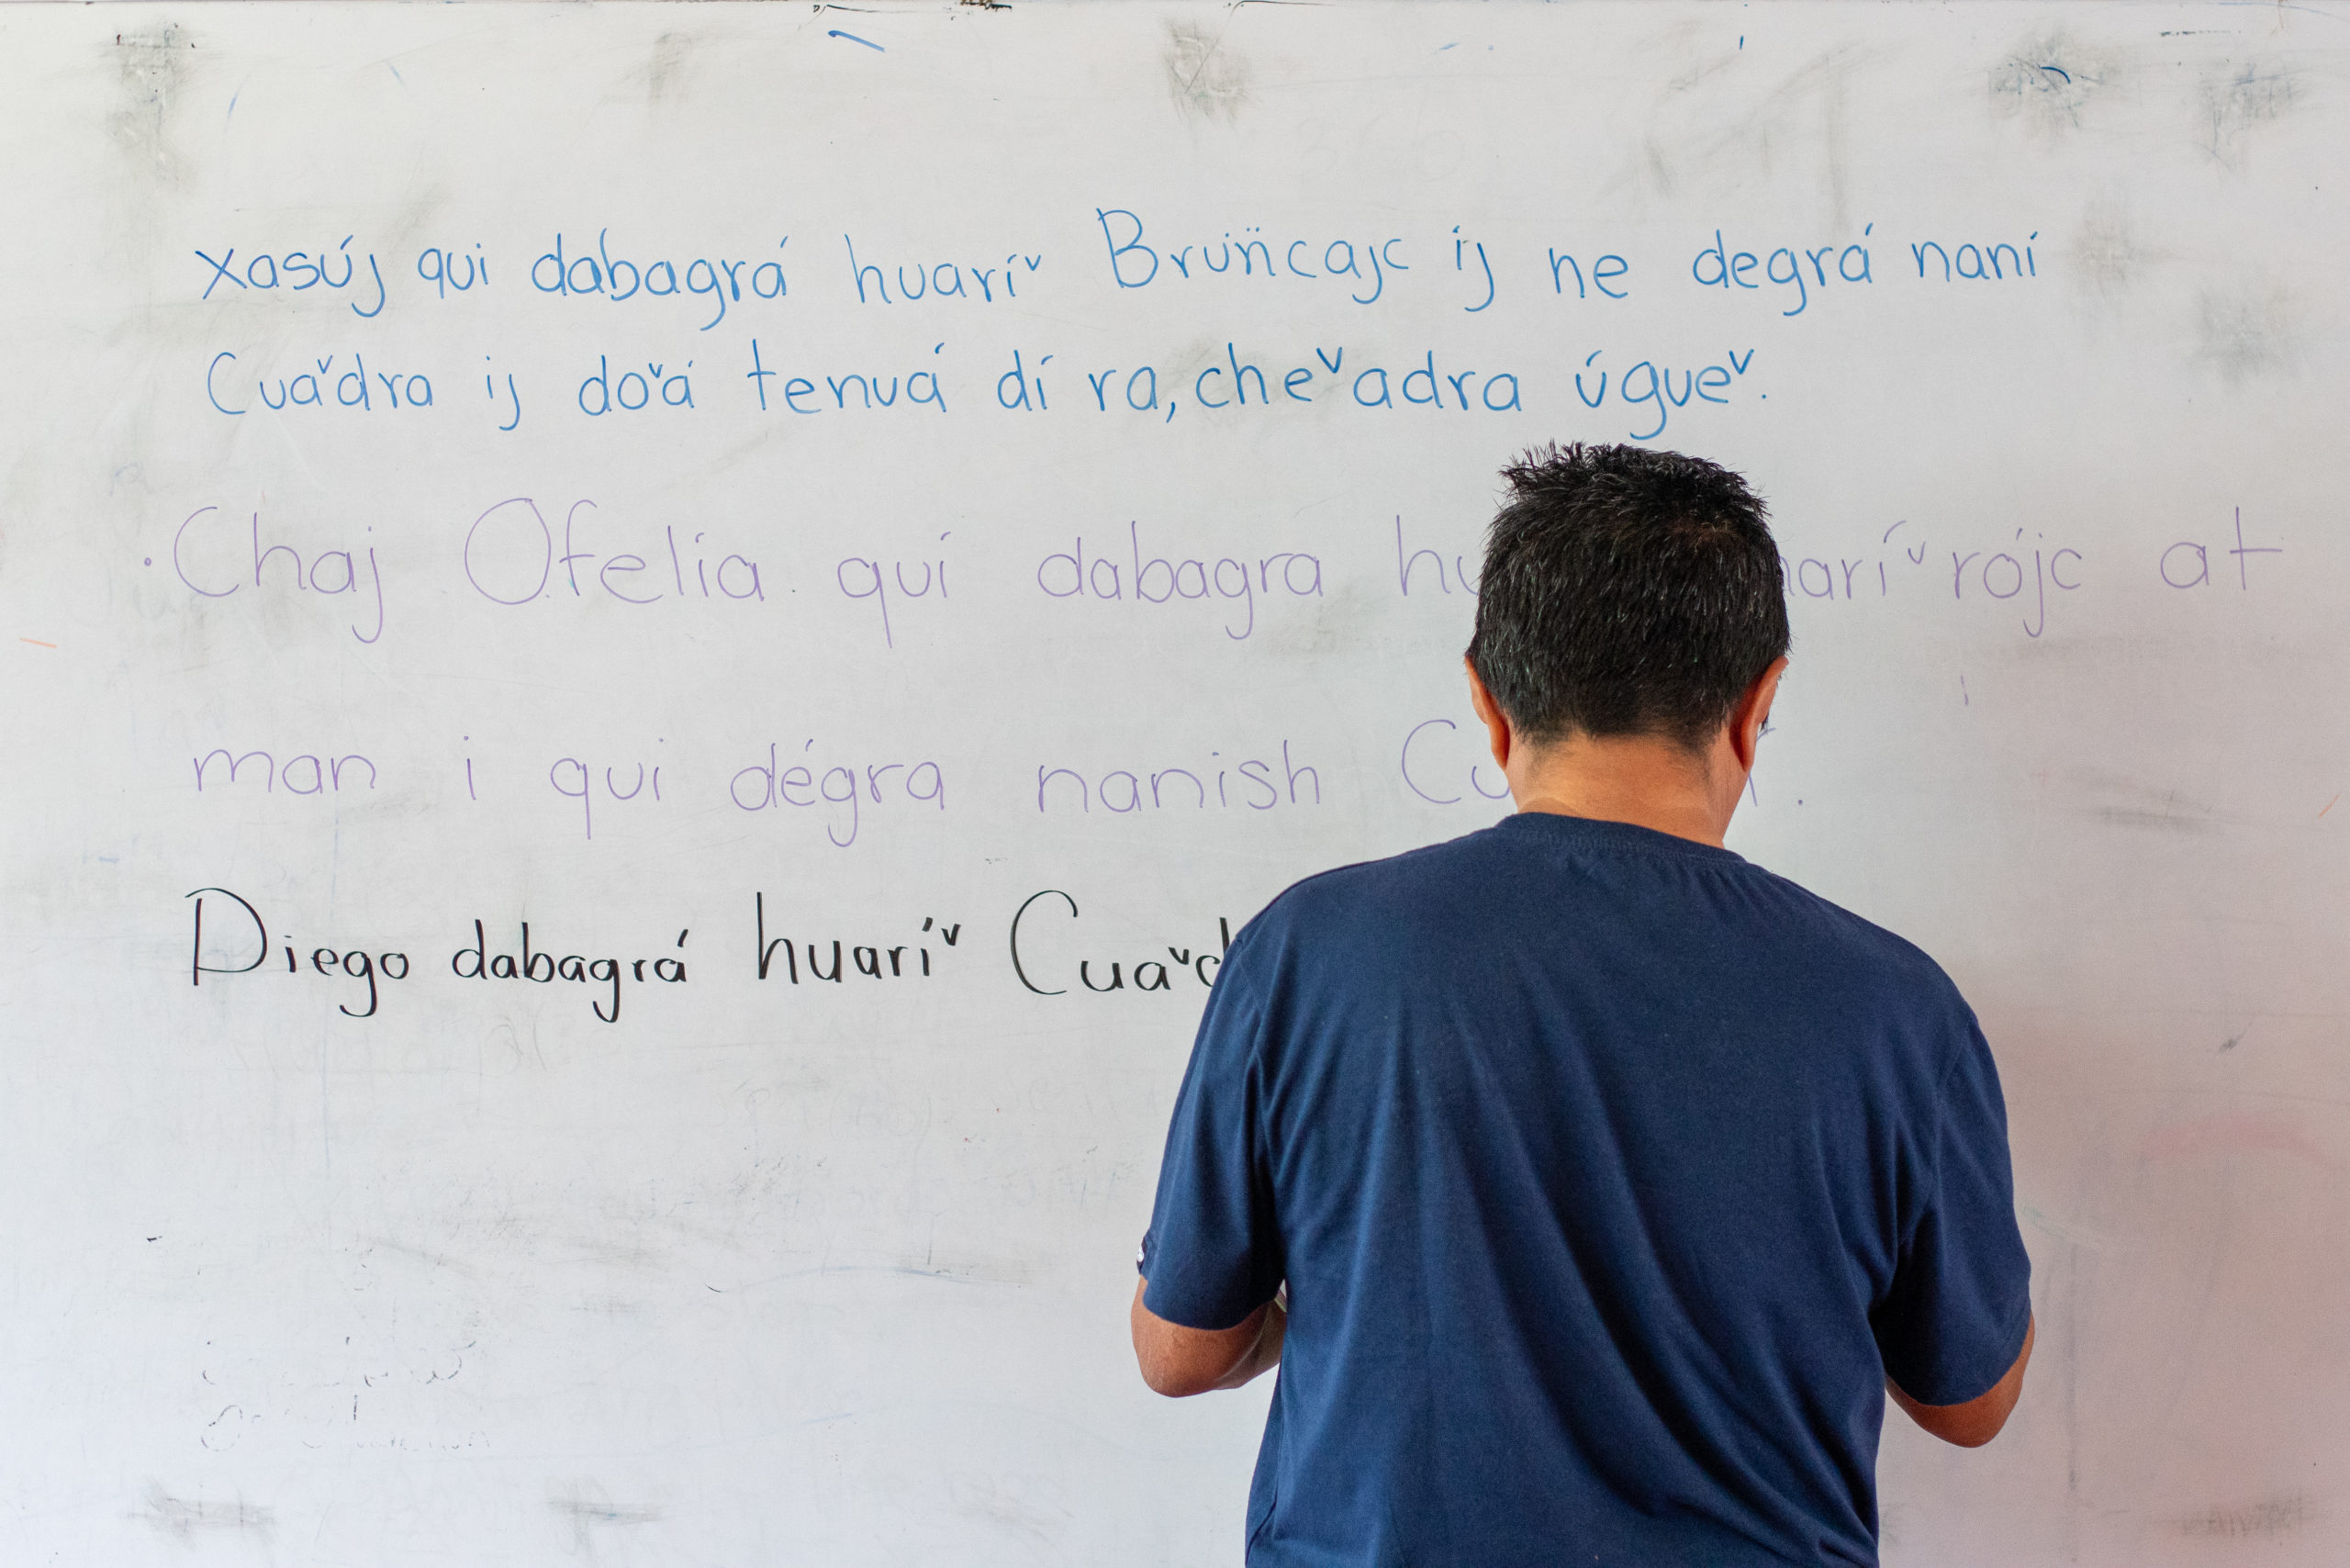 xasúj qui dabagrá huaríˇ Brun̈cajc íj ne degrá naní
Cuaˇdra ij doˇá tenuá dí ra, cheˇadra úgueˇ.
·Chaj Ofelia. quí dabagra rójc at
man i qui dégra nanish
Diego dabagrá huaríˇ